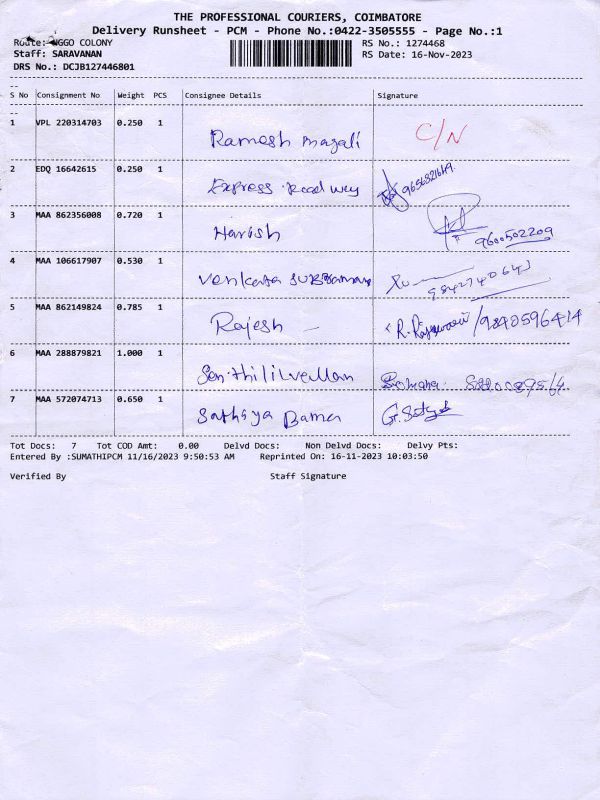 THE PROFESSIONAL COURIERS, COIMBATORE
Delivery Runsheet - PCM - Phone No.:0422-3505555 - Page No.:1
Route: NGGO COLONY RS No.: 1274468
Staff: SARAVANAN RS Date: 16-Nov-2023
DRS No.: DCJB127446801
S No Consignment No Weight PCS Consignee Details Signature
1 VPL 220314703 0.250 1
Ramesh C/N
2 EDQ 16642615 0.250 1
Express Road way
3 MAA 862356008 0.720 1
Harish 9600502209
4 MAA 106617907 0.530 1
Venkata
5 MAA 862149824 0.785 1
Rajesh R. Rajeswari /9840596414
6 MAA 288879821 1.000 1
7 MAA 572074713 0.650 1
Sathiya Bama
Tot Docs: 7 Tot COD Amt: 0.00 Delvd Docs: Non Delvd Docs: Delvy Pts:
Entered By :SUMATHIPCM 11/16/2023 9:50:53 AM Reprinted On: 16-11-2023 10:03:50
Verified By Staff Signature